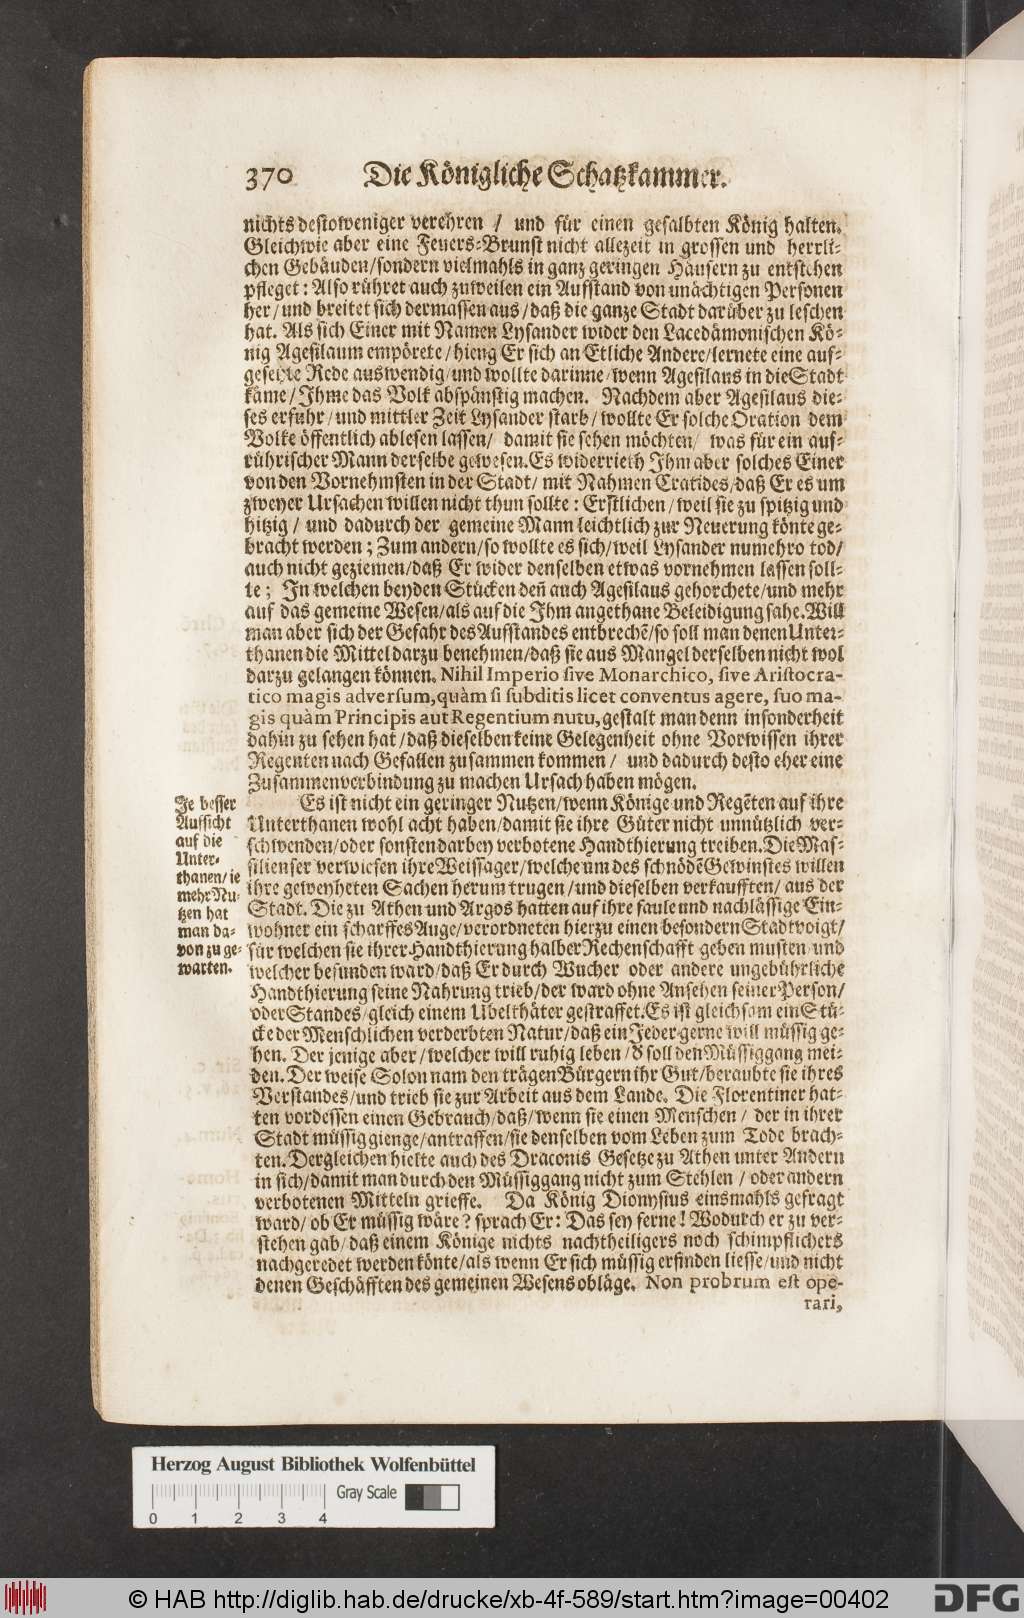 370 Die Königliche Schatzkammer.
nichts destoweniger verehren / und für einen gesalbten König halten.
Gleichwie aber eine Feuers-Brunst nicht allezeit in grossen und herrli-
chen Gebäuden/sondern vielmahls in ganz geringen Häusern zu entstehen
pfleget: Also rühret auch zuweilen ein Aufstand von unächtigen Personen
her/und breitet sich dermassen aus/daß die ganze Stadt darüber zu leschen
hat. Als sich Einer mit Namen Lysander wider den Lacedämonischen Kö-
nig Agesilaum empörete/hieng Er sich an Etliche Andere/lernete eine auf-
gesetzte Rede auswendig/und wollte darinne/wenn Agesilaus in die Stadt
käme/Ihme das Volk abspänstig machen. Nachdem aber Agesilaus die-
ses erfuhr/und mittler Zeit Lysander starb/wollte Er solche Oration dem
Volke öffentlich ablesen lassen/ damit sie sehen möchten/ was für ein auf-
rührischer Mann derselbe gewesen. Es widerrieth Ihm aber solches Einer
von den Vornehmsten in der Stadt/ mit Nahmen Cratides/daß Er es um
zweyer Ursachen willen nicht thun sollte: Erstlichen/weil sie zu spitzig und
hitzig/ und dadurch der gemeine Mann leichtlich zur Neuerung könte ge-
bracht werden; Zum andern/so wollte es sich/weil Lysander numehro tod/
auch nicht geziemen/daß Er wider denselben etwas vornehmen lassen soll-
te; In welchen beyden Stücken deñ auch Agesilaus gehorchete/und mehr
auf das gemeine Wesen/als auf die Ihm angethane Beleidigung sahe. Will
man aber sich der Gefahr des Aufstandes entbrechẽ/so soll man denen Unter-
thanen die Mittel darzu benehmen/daß sie aus Mangel derselben nicht wol
darzu gelangen können. Nihil Imperio sive Monarchico, sive Aristocra-
tico magis adversum, quàm si subditis licet conventus agere, suo ma-
gis quàm Principis aut Regentium nutu, gestalt man denn insonderheit
dahin zu sehen hat/daß dieselben keine Gelegenheit ohne Vorwissen ihrer
Regenten nach Gefallen zusammen kommen/ und dadurch desto eher eine
Zusammenverbindung zu machen Ursach haben mögen.
Je besser
Aufsicht
auf die
Unter-
thanen/ je
mehr Nu-
tzen hat
man da-
von zu ge-
warten.
Es ist nicht ein geringer Nutzen/wenn Könige und Regẽten auf ihre
Unterthanen wohl acht haben/damit sie ihre Güter nicht unnützlich ver-
schwenden/oder sonsten darbey verbotene Handthierung treiben. Die Mas-
silienser verwiesen ihre Weissager/welche um des schnödẽ Gewinstes willen
ihre geweyheten Sachen herum trugen/und dieselben verkaufften/ aus der
Stadt. Die zu Athen und Argos hatten auf ihre faule und nachlässige Ein-
wohner ein scharffes Auge/verordneten hierzu einen besondern Stadtvoigt/
für welchen sie ihrer Handthierung halber Rechenschafft geben musten/und
welcher befunden ward/daß Er durch Wucher oder andere ungebührliche
Handthierung seine Nahrung trieb/der ward ohne Ansehen seiner Person/
oder Standes/gleich einem Ubelthäter gestraffet. Es ist gleichsam ein Stü-
cke der Menschlichen verderbten Natur/daß ein Jeder gerne will müssig ge-
hen. Der jenige aber/welcher will ruhig leben/ď soll den Müssiggang mei-
den. Der weise Solon nam den trägen Bürgern ihr Gut/beraubte sie ihres
Verstandes/und trieb sie zur Arbeit aus dem Lande. Die Florentiner hat-
ten vordessen einen Gebrauch/daß/wenn sie einen Menschen/ der in ihrer
Stadt müssig gienge/antraffen/sie denselben vom Leben zum Tode brach-
ten. Dergleichen hielte auch des Draconis Gesetze zu Athen unter Andern
in sich/damit man durch den Müssiggang nicht zum Stehlen/ oder andern
verbotenen Mitteln grieffe. Da König Dionysius einsmahls gefragt
ward/ ob Er müssig wäre? sprach Er: Das sey ferne! Wodurch er zu ver-
stehen gab/daß einem Könige nichts nachtheiligers noch schimpflichers
nachgeredet werden könte/als wenn Er sich müssig erfinden liesse/und nicht
denen Geschäfften des gemeinen Wesens obläge. Non probrum est ope-
rari,
Herzog August Bibliothek Wolfenbüttel
Gray Scale
0 1 2 3 4
© HAB http://diglib.hab.de/drucke/xb-4f-589/start.htm?image=00402
DFG